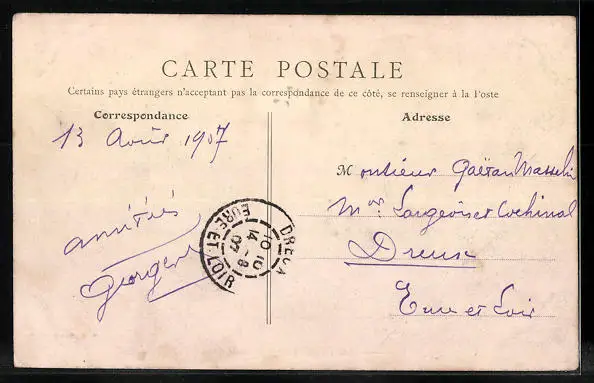 CARTE POSTALE
Certains pays étrangers n'acceptant pas la correspondance de ce côté, se renseigner à la Poste
Correspondance
Adresse
13 Août 1907
amitiés
Monsieur Gaëtan
Mon
Dreux
Eure et Loir
EURE ET LOIR
10 10
14 - 8
07